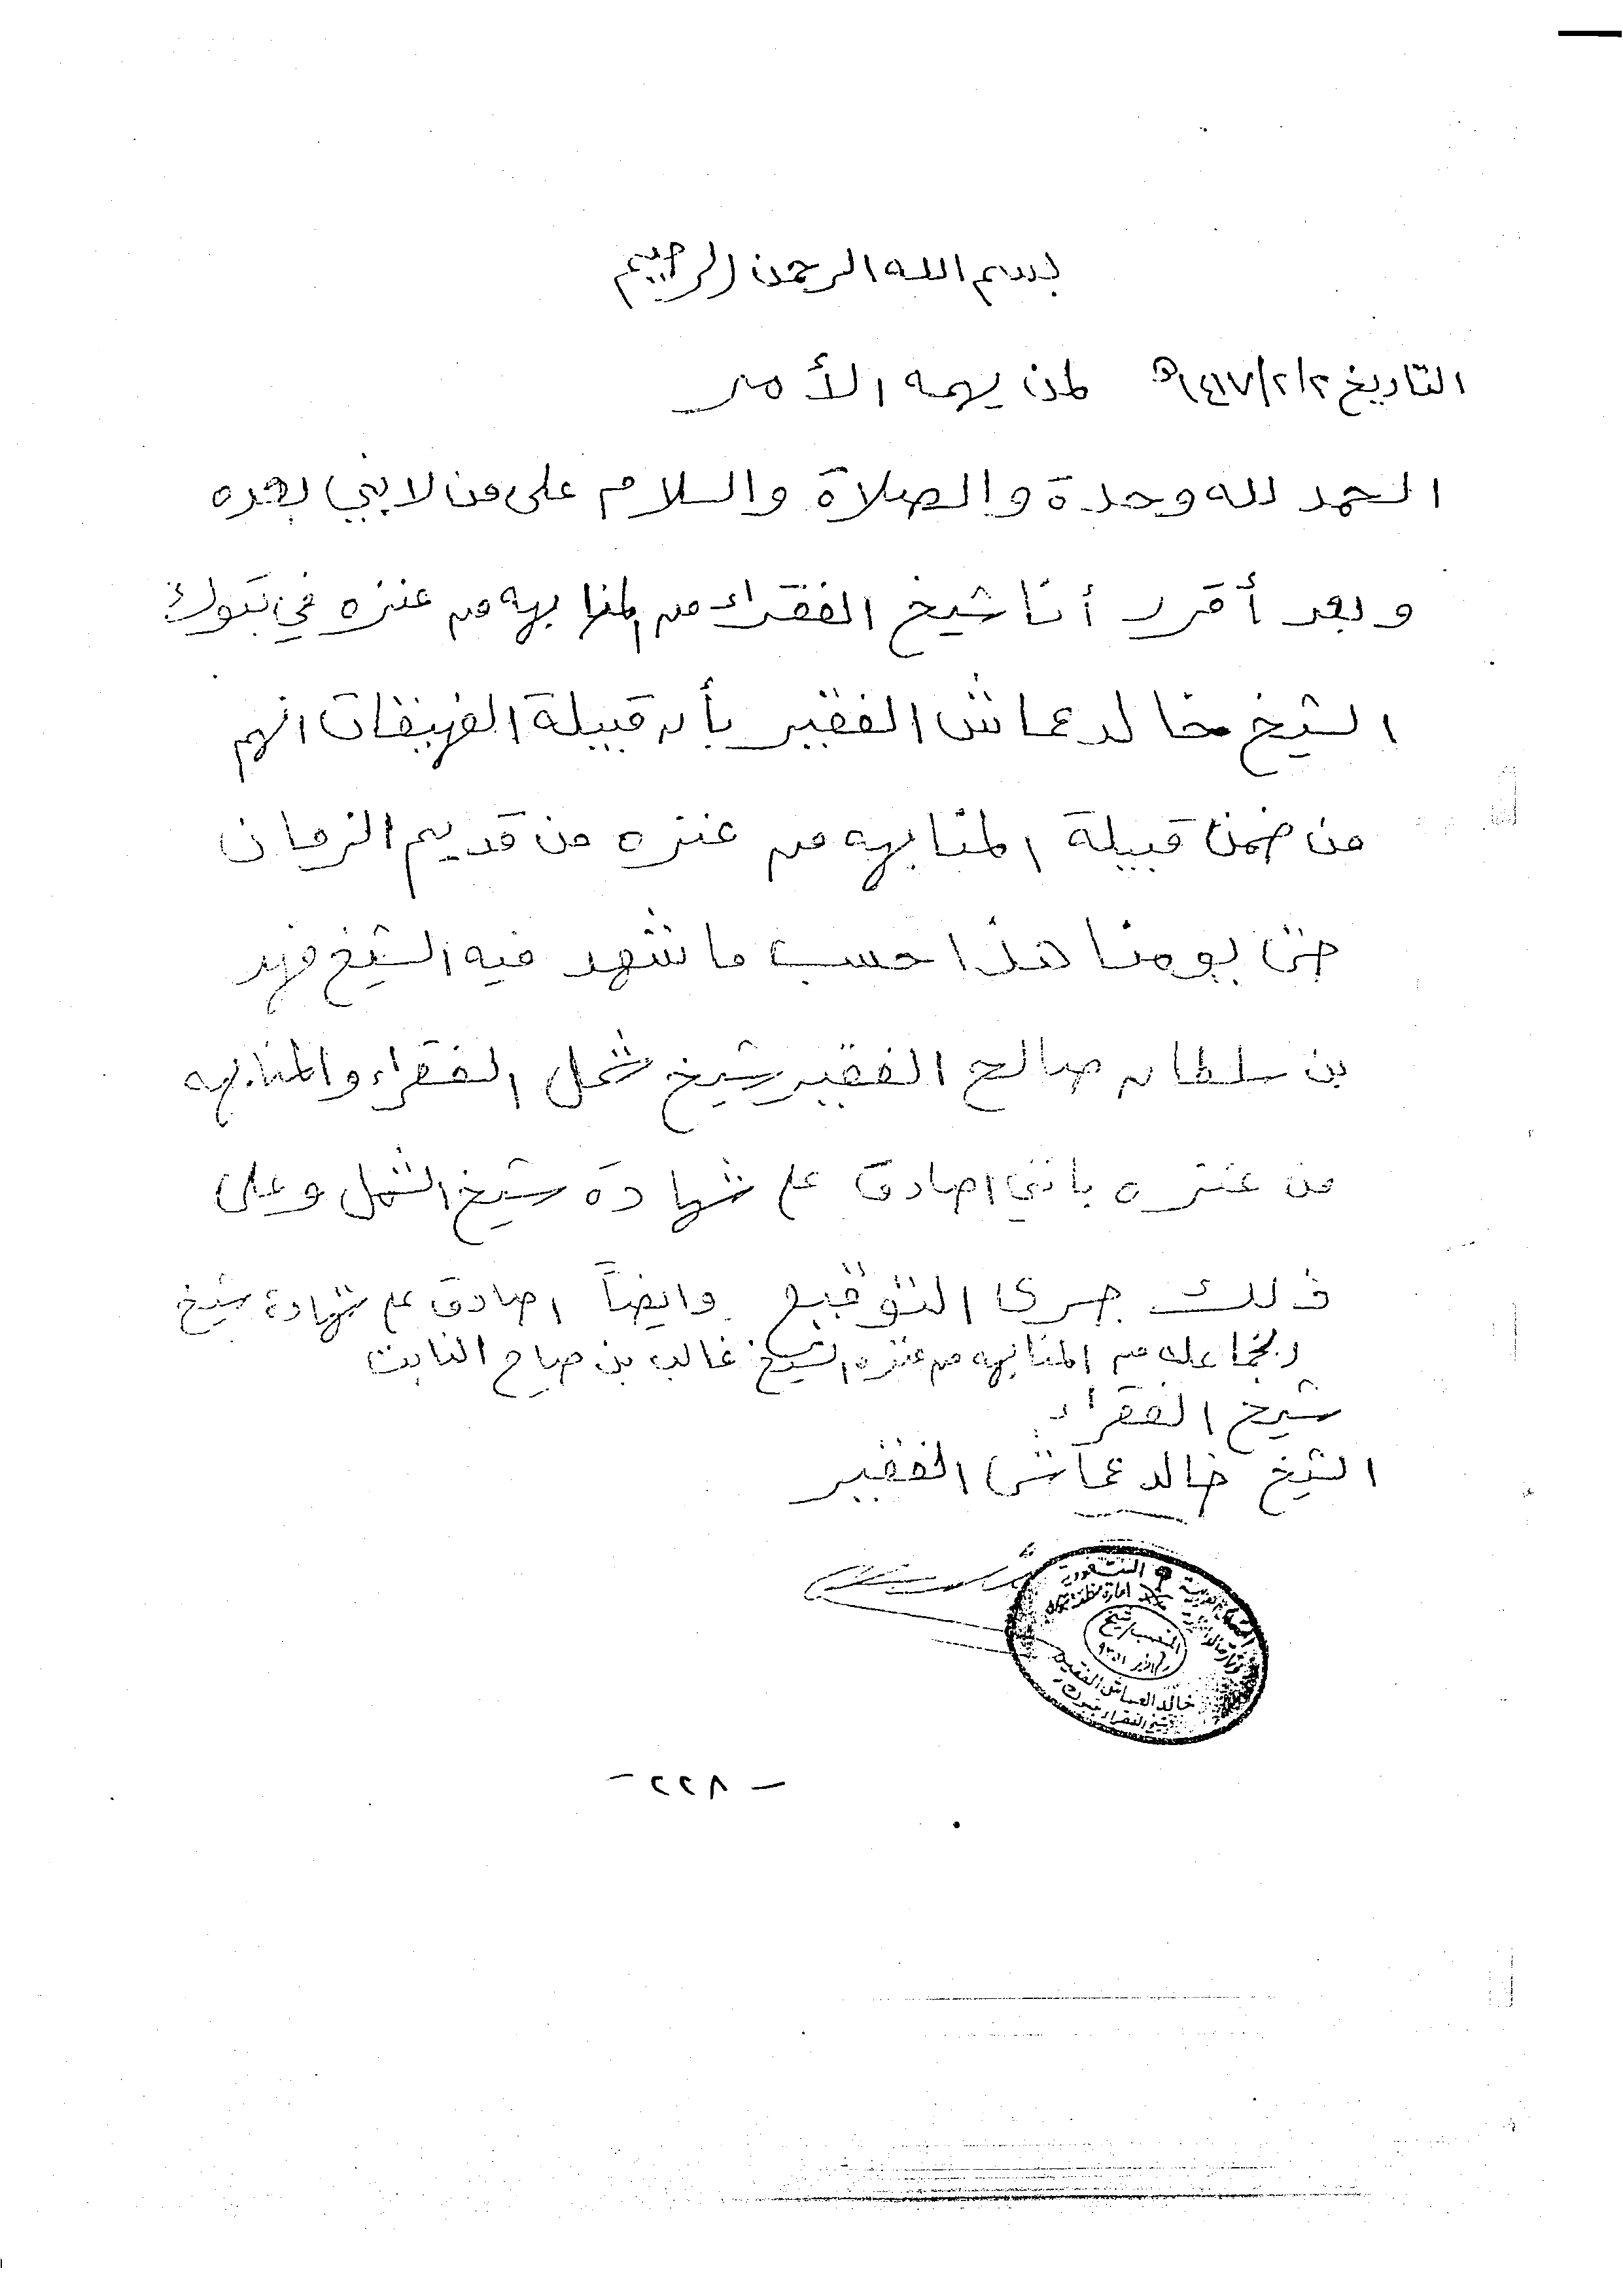 بسم الله الرحمن الرحيم
التاريخ ٢/٢/١٤١٧هـ لمن يهمه الأمر
الحمد لله وحدة والصلاة والسلام على من لا نبي بعده
وبعد أقرر أنا شيخ الفقراء من المنابهه من عنزه في تبوك
الشيخ خالد عماش الفقير بأن قبيلة الفهيقات انهم
من ضمن قبيلة المنابهه من عنزه من قديم الزمان
حتى يومنا هذا حسب ما شهد فيه الشيخ فهد
بن سلطان صالح الفقير شيخ شمل الفقراء والمنابهه
من عنزه بانني اصادق على شهادة شيخ الشمل وعلى
ذلك جرى التوقيع وايضاً اصادق على شهادة شيخ
من المنابهه من عنزه الشيخ غالب بن صباح النابت
شيخ الفقراء
الشيخ خالد عماش الفقير
السعودية
امارة منطقة تبوك
شيخ
خالد العماش الفقير
شيخ الفقراء بتبوك
- ٢٢٨ -